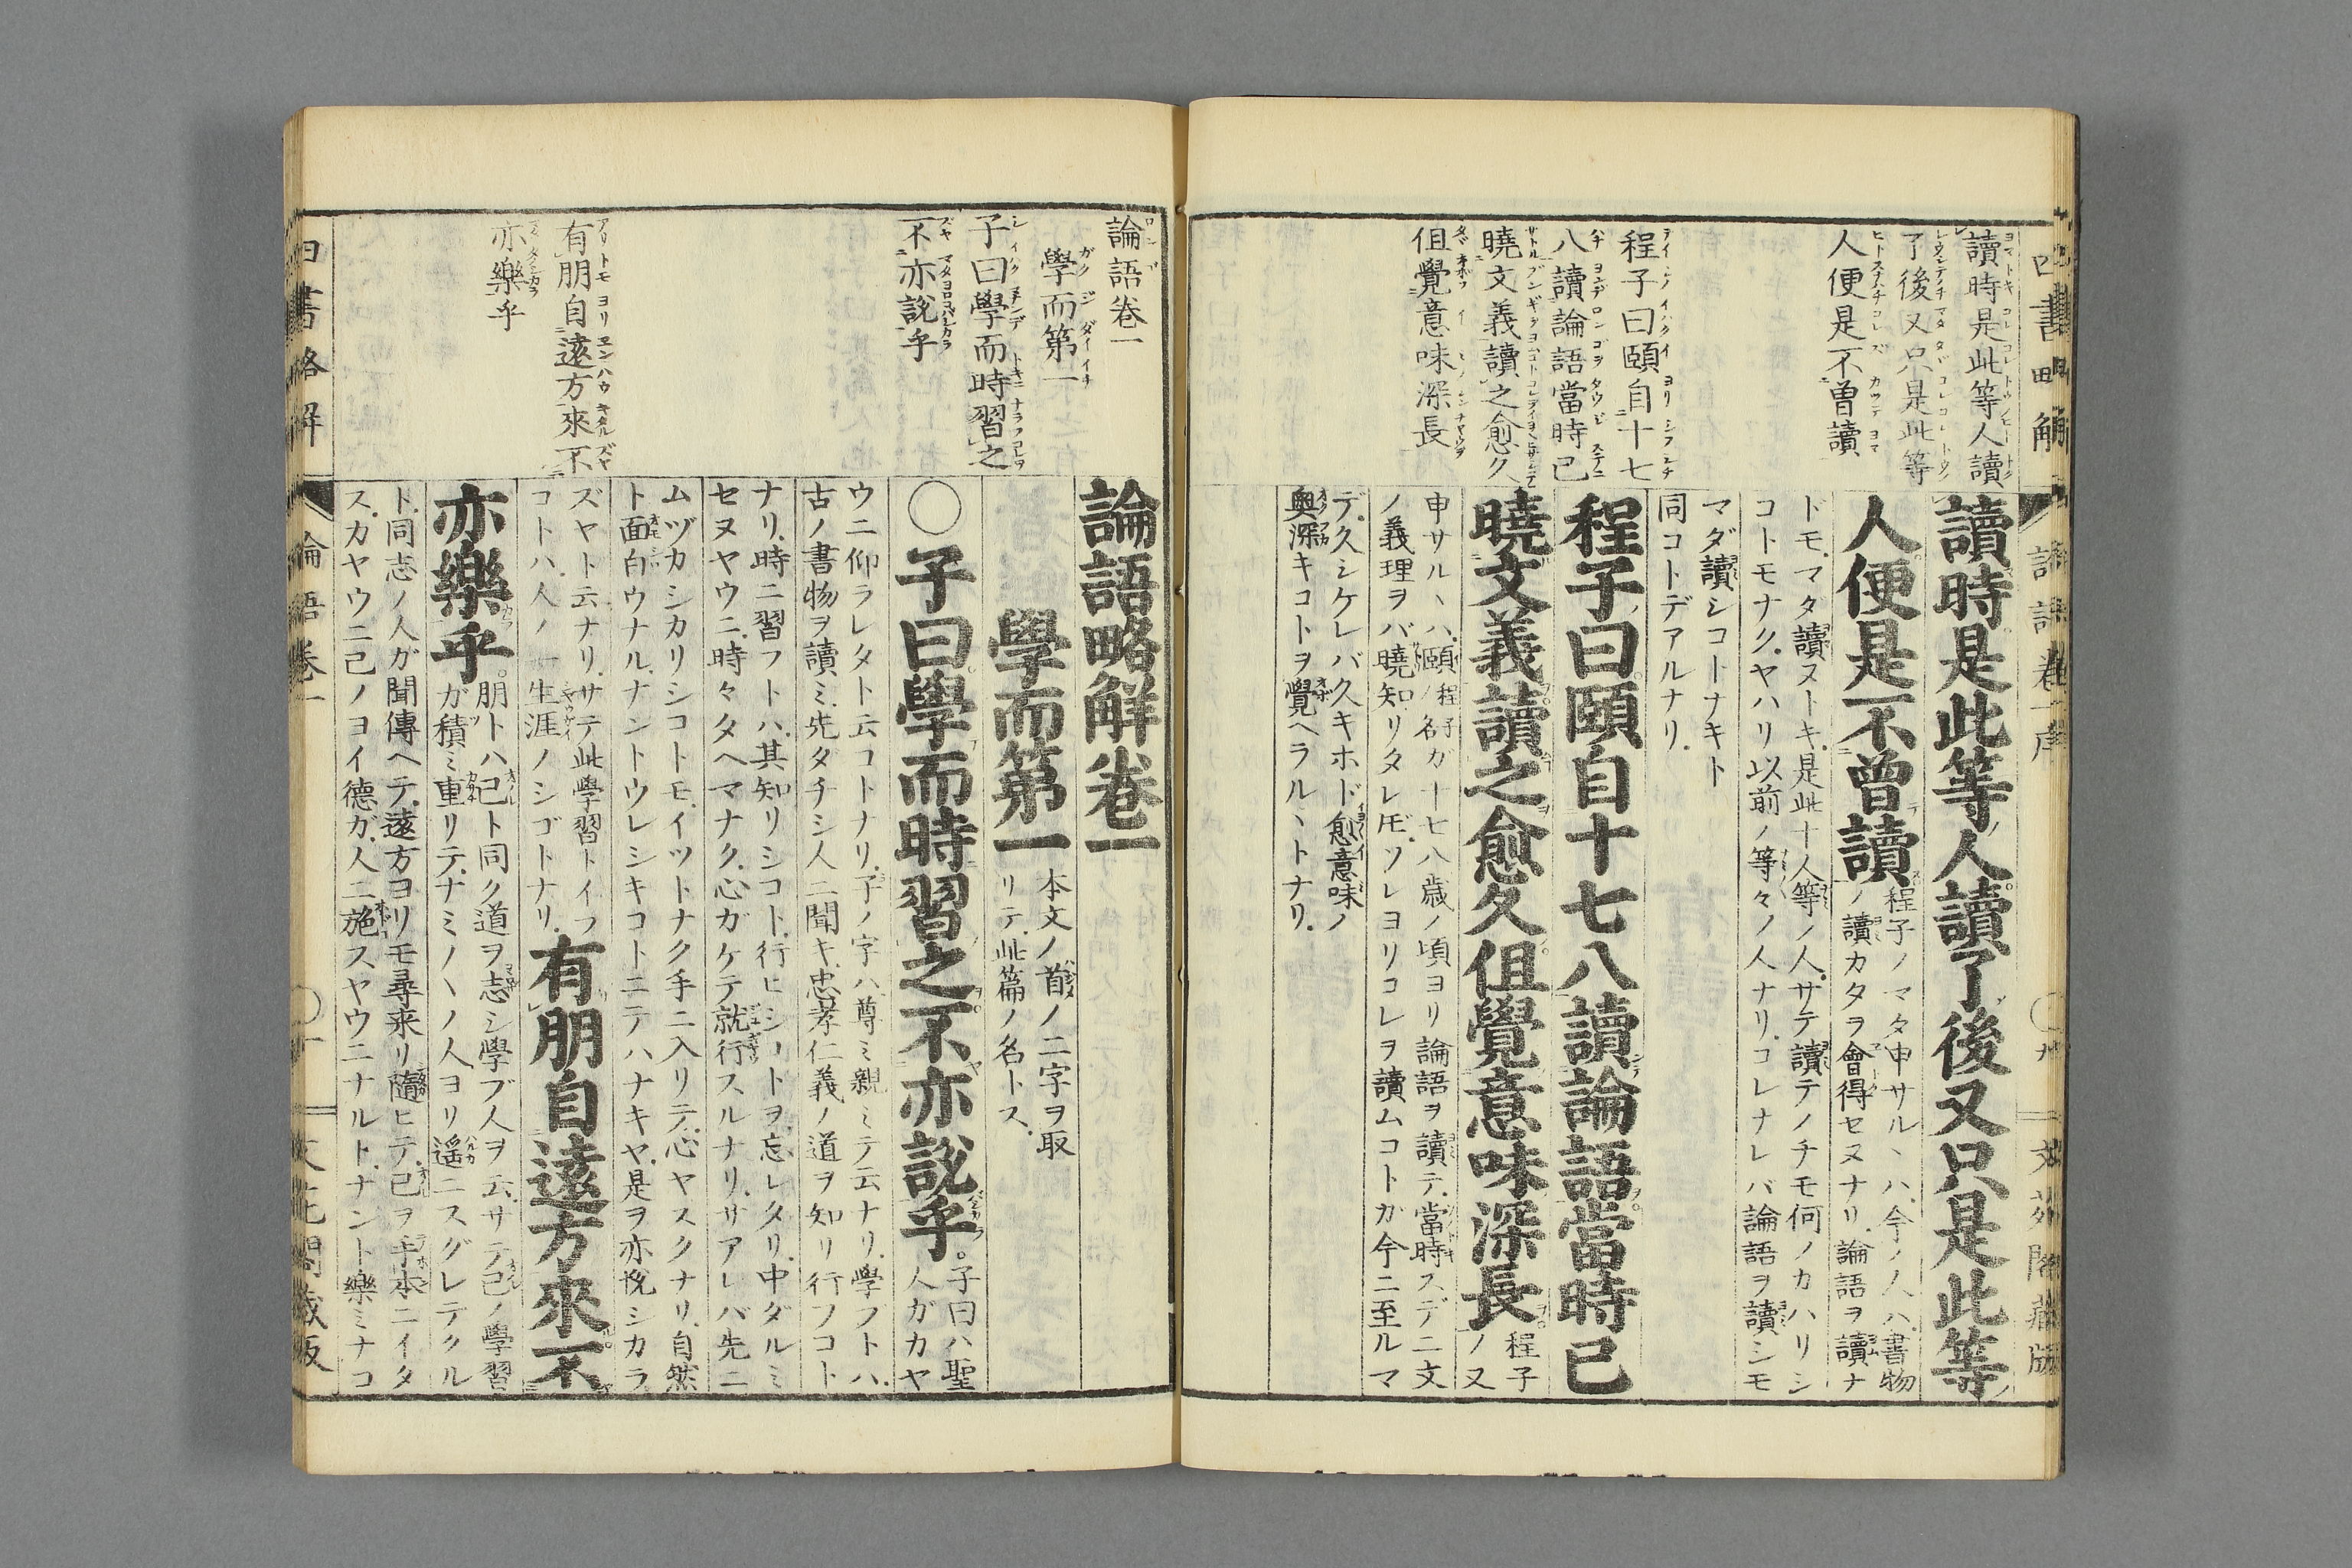 四書略解
論語卷一序
文苑閣藏版
讀時是此等人讀
了後又只是此等
人便是不曾讀
程子曰頤自十七
八讀論語當時已
曉文義讀之愈久
但覺意味深長
讀時是此等人讀了後又只是此等
人便是不曾讀
程子ノマタ申サルヽハ今ノ人ハ書物
ノ讀カタヲ會得セヌナリ論語ヲ讀ナ
ドモマタ讀ヌトキ是此十人等ノ人サテ讀テノチモ何ノカハリシ
コトモナクヤハリ以前ノ等々ノ人ナリコレナレバ論語ヲ讀シモ
マダ讀シコトナキト
同コトデアルナリ
程子曰頤自十七八讀論語當時已
曉文義讀之愈久但覺意味深長
程子
ノ又
申サルヽハ頤ガ十七八歳ノ頃ヨリ論語ヲ讀テ當時スデニ文
ノ義理ヲバ曉知リタレ𪜈ソレヨリコレヲ讀ムコトガ今ニ至ルマ
デ久シケレバ久キホド愈意味ノ
奥深キコトヲ覺ヘラルヽトナリ
論語卷一
學而第一
子曰學而時習之
不亦說乎
有朋自遠方來不
亦樂乎
論語略解卷一
學而第一
本文ノ首ノ二字ヲ取
リテ此篇ノ名トス
〇子曰學而時習之不亦說乎。
子曰ハ聖
人ガカヤ
ウニ仰ラレタト云コトナリ子ノ字ハ尊ミ親ミテ云ナリ學フトハ
古ノ書物ヲ讀ミ先ダチシ人ニ聞キ忠孝仁義ノ道ヲ知リ行フコト
ナリ時ニ習フトハ其知リシコト行ヒシコトヲ忘レタリ中ダルミ
セヌヤウニ時々タヘマナク心ガケテ就行スルナリサアレバ先ニ
ムヅカシカリシコトモイツトナク手ニ入リテ心ヤスクナリ自然
ト面白ウナルナントウレシキコトニテハナキヤ是ヲ亦悅シカラ
ズヤト云ナリサテ此學習トイフ
コトハ人ノ一生涯ノシゴトナリ
有朋自遠方來不
亦樂乎。
朋トハ己ト同ク道ヲ志シ學ブ人ヲ云サテ己ノ學習
ガ積ミ重リテナミノヽ人ヨリ遥ニスグレテクル
ト同志ノ人ガ聞傳ヘテ遠方ヨリモ尋来リ隨ヒテ己ヲ手本ニイタ
スカヤウニ己ノヨイ德ガ人ニ施スヤウニナルトナント樂ミナコ
四書略解
論語卷一